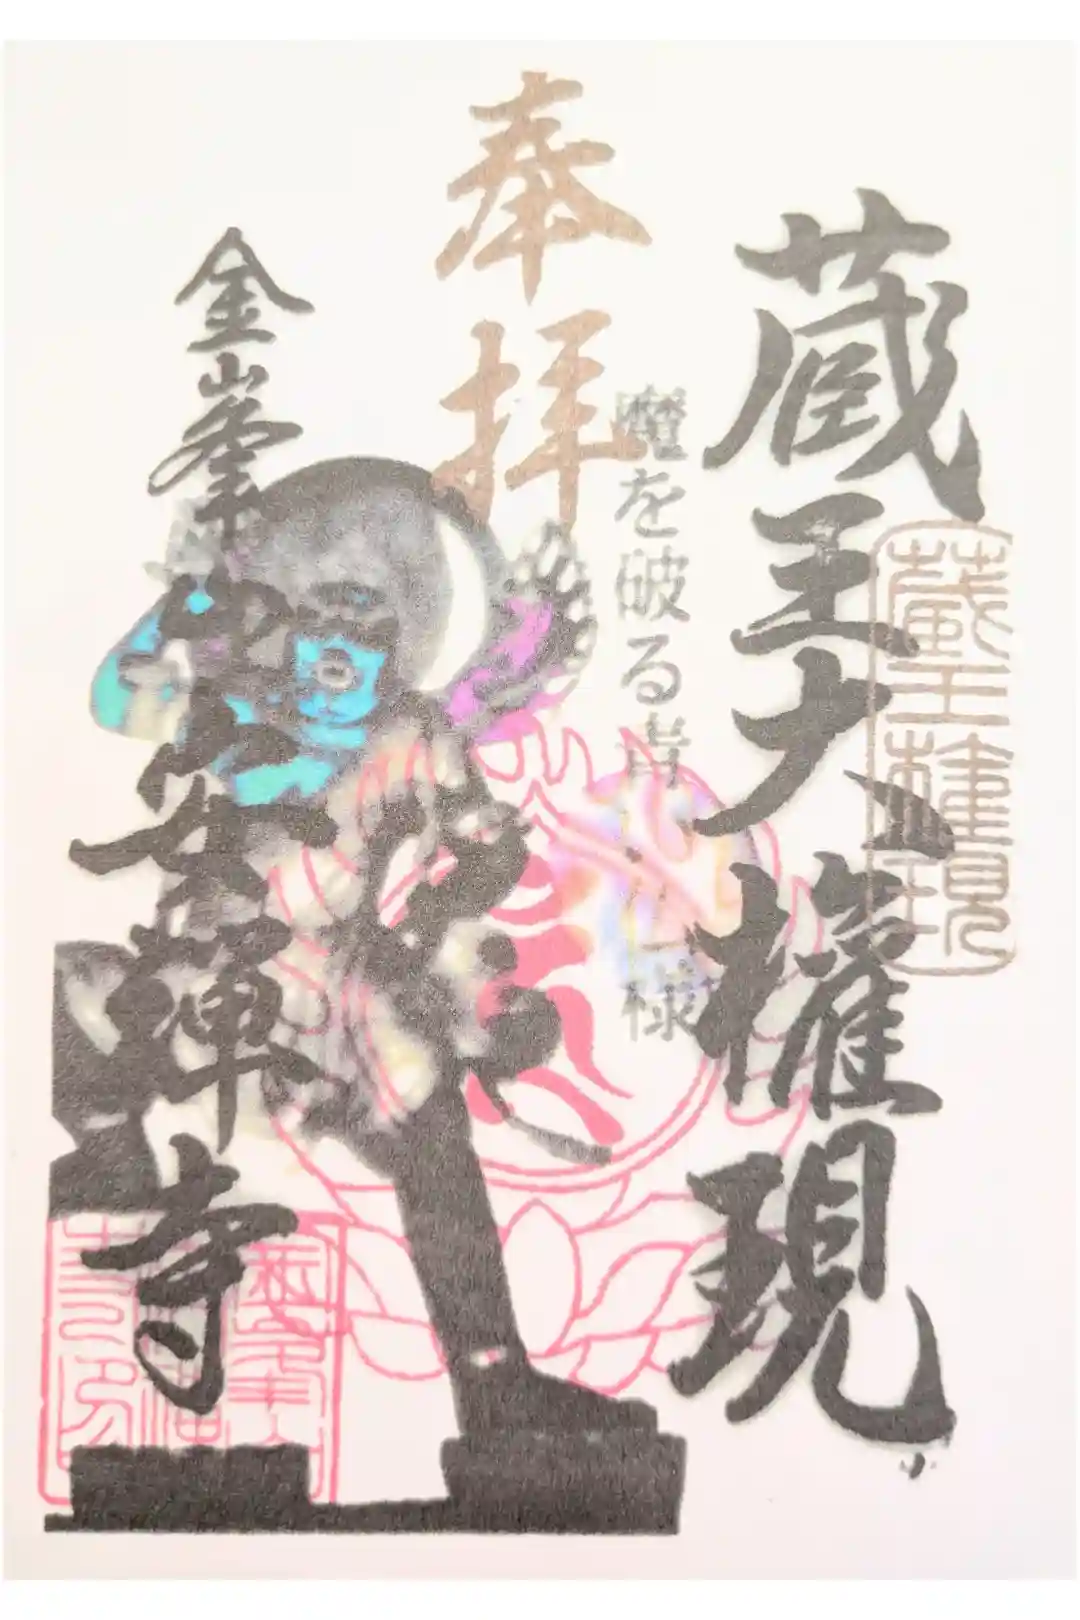 蔵王大権現
蔵王権現
魔を破る青い仏様
奉拝
金峯山安禅寺